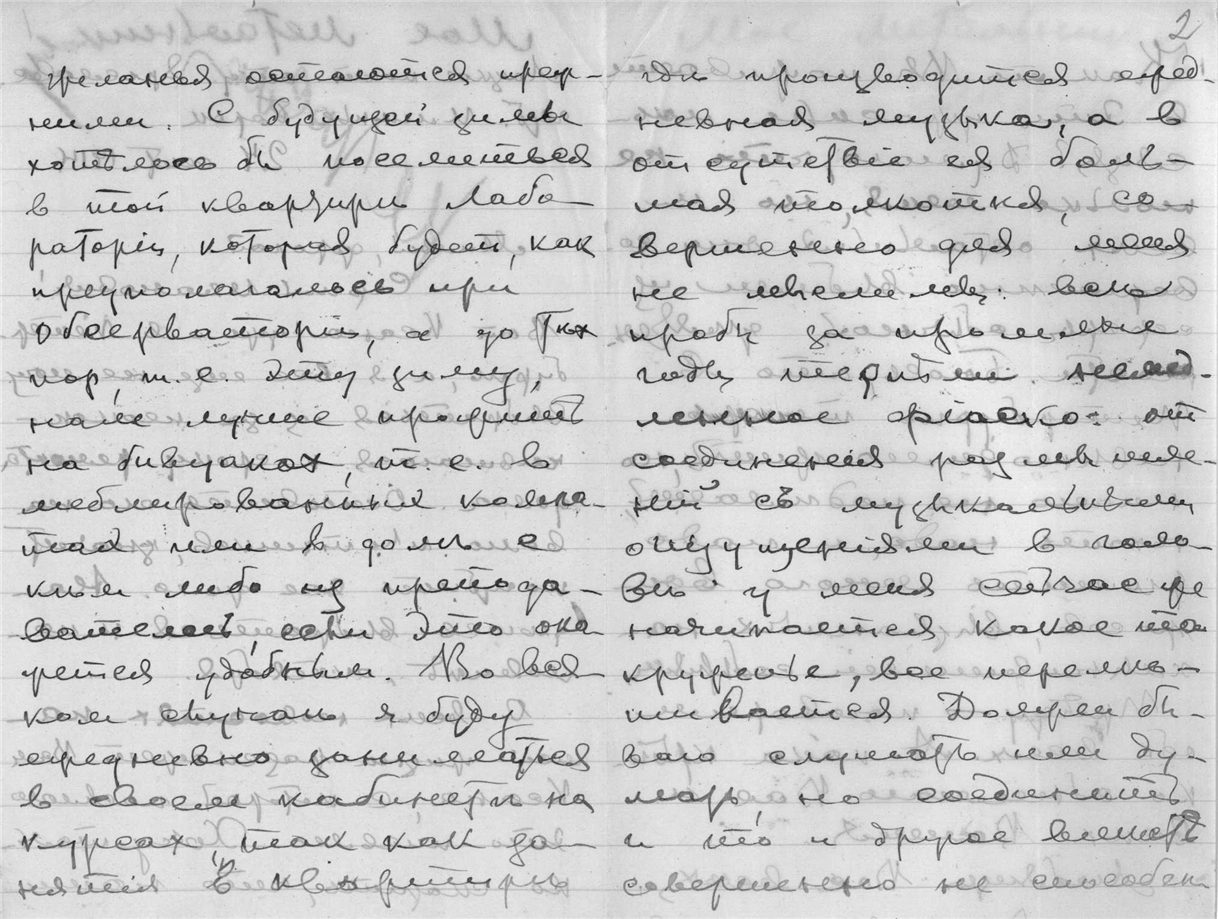 желанья остаются преж-
ними. С будущей зимы
хотѣлось бы поселиться
в той квартирѣ Лабо-
раторіи, которая будет, как
предполагалось при
Обсерваторіи, а до тѣх
пор т.е. эту зиму,
нам лучше прожить
на бивуаках, т.е. в
меблированных комна-
тах или в домѣ с
кѣм либо из препода-
вателей, если это ока-
жется удобным. Во вся-
ком случаѣ я буду
ежедневно заниматься
в своем кабинетѣ на
курсах, так как за-
нятія в квартирѣ
2
гдѣ производится ежед-
невная музыка, а в
отсутствіе ея боль-
шая толкотня, со-
вершенно для меня
не мыслимы: всѣ
пробы за прошлые
годы терпѣли немед-
ленное фіаско: от
соединенія размышле-
ній съ музыкальными
ощущеніями в голо-
вѣ у меня сейчас же
начинается какое то
круженье, все перемѣ-
шивается. Должен бы-
ваю слушать или ду-
мать, но соединить
и то и другое вмѣстѣ
совершенно не способен